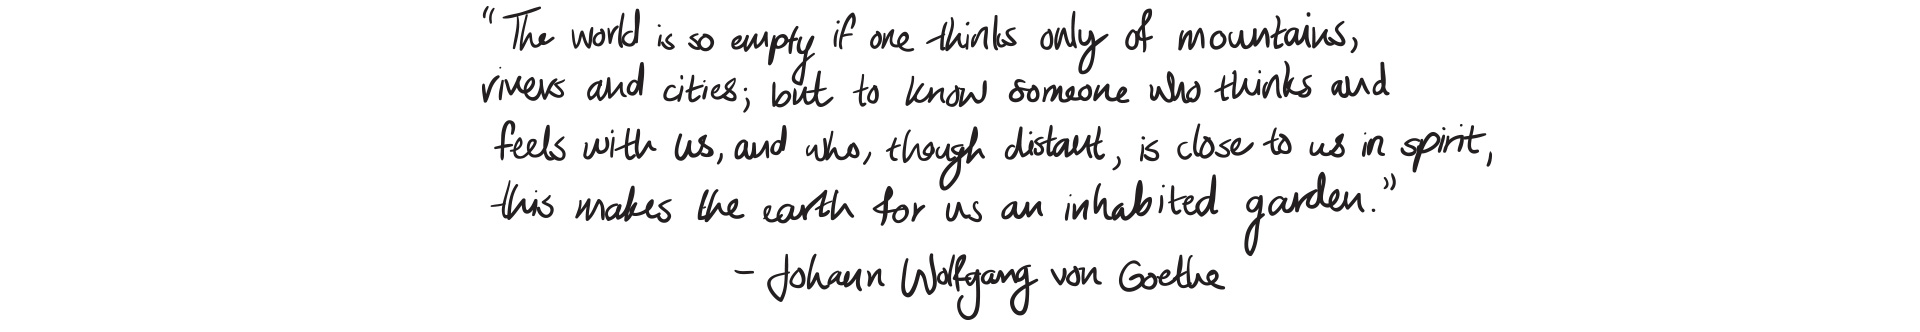 “The world is so empty if one thinks only of mountains,
rivers and cities; but to know someone who thinks and
feels with us, and who, though distant, is close to us in spirit,
this makes the earth for us an inhabited garden.”
– Johann Wolfgang von Goethe